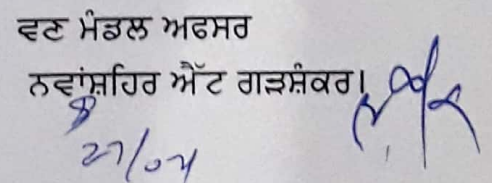 ਵਣ ਮੰਡਲ ਅਫਸਰ
ਨਵਾਂਸ਼ਹਿਰ ਐੱਟ ਗੜਸ਼ੰਕਰ।